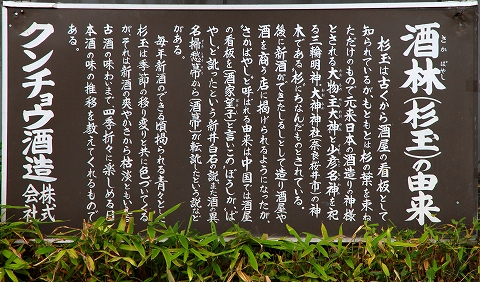 さかばやし
酒林(杉玉)の由来
杉玉は古くから酒屋の看板として
知られているが、もともとは杉の葉を束ね
ただけのもので元来日本の酒造りの神様
とされる大物主大神と少彦名神を祀
る三輪明神・大神神社(奈良桜井市)の神
木である杉にちなんだものとされている。
後に新酒がでたしるしとして造り酒屋や
酒を商う店に掲げられるようになったが、
さかばやしと呼ばれる由来は中国では酒屋
の看板を(酒家望子)と言いこのぼうしが、ば
やしと訛ったという新井白石の説また酒の異
名掃愁箒から(酒箒)が転訛したという説など
がある。
毎年新酒のできる頃掲られる青々とし
杉玉は季節の移り変りと共に色づいてくる
がそれは新酒の爽やかさから枯淡ともいえる
古酒の味わいまで、四季折々に楽しめる日
本酒の味の推移を教えてくれるもので
ある。
クンチョウ酒造株式会社